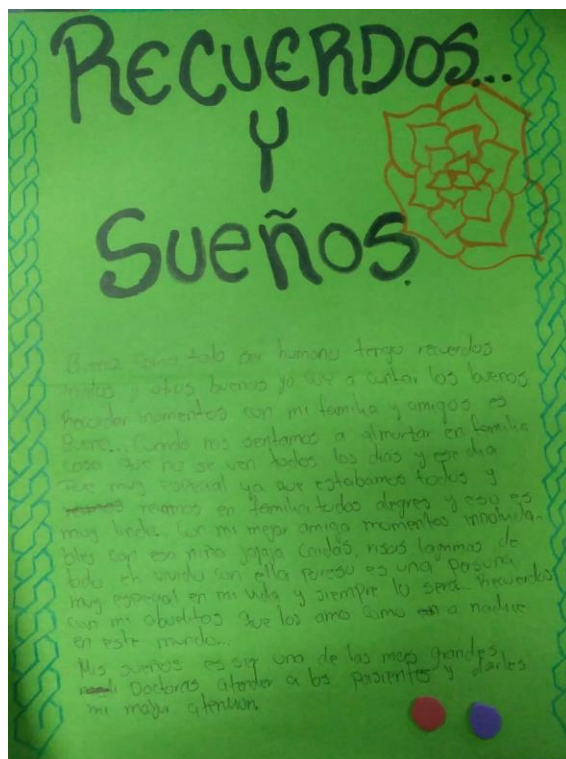 RECUERDOS...
Y
SUEÑOS.
Bueno como todo ser humano tengo recuerdos
malos y otros buenos yo voy a contar los buenos
Recordar momentos con mi familia y amigos es
Bueno... Cuando nos sentamos a almorzar en familia
cosa que no se ven todos los dias y ese dia
Fue muy especial ya que estabamos todos y
reirnos en familia todos alegres y eso es
muy lindo.. Con mi mejor amiga momentos inolvida-
bles con esa niña jajaja Caidas, risas lagrimas de
todo eh vivido con ella poreso es una persona
muy especial en mi vida y siempre lo sera.. Recuerdos
con mi abuelitos que los amo como a nadie
en este mundo...
Mis sueños es ser una de las mas grandes
Doctoras atender a los pasientes y darles
mi mayor atencion.